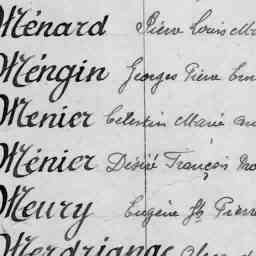 Ménard Pierre Louis
Méngin Georges Pierre
Menier Celestin Marie
Ménier Désiré François
Meury Eugène Jh Pierre